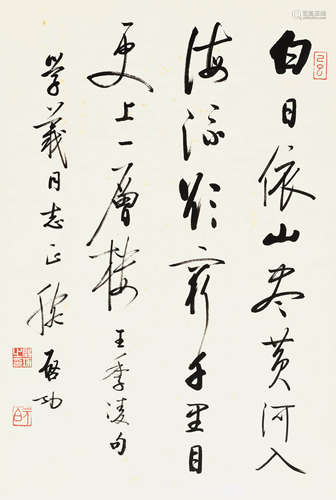 白日依山尽黄河入
海流欲穷千里目
更上一層楼 王季凌句
学義同志正 启功